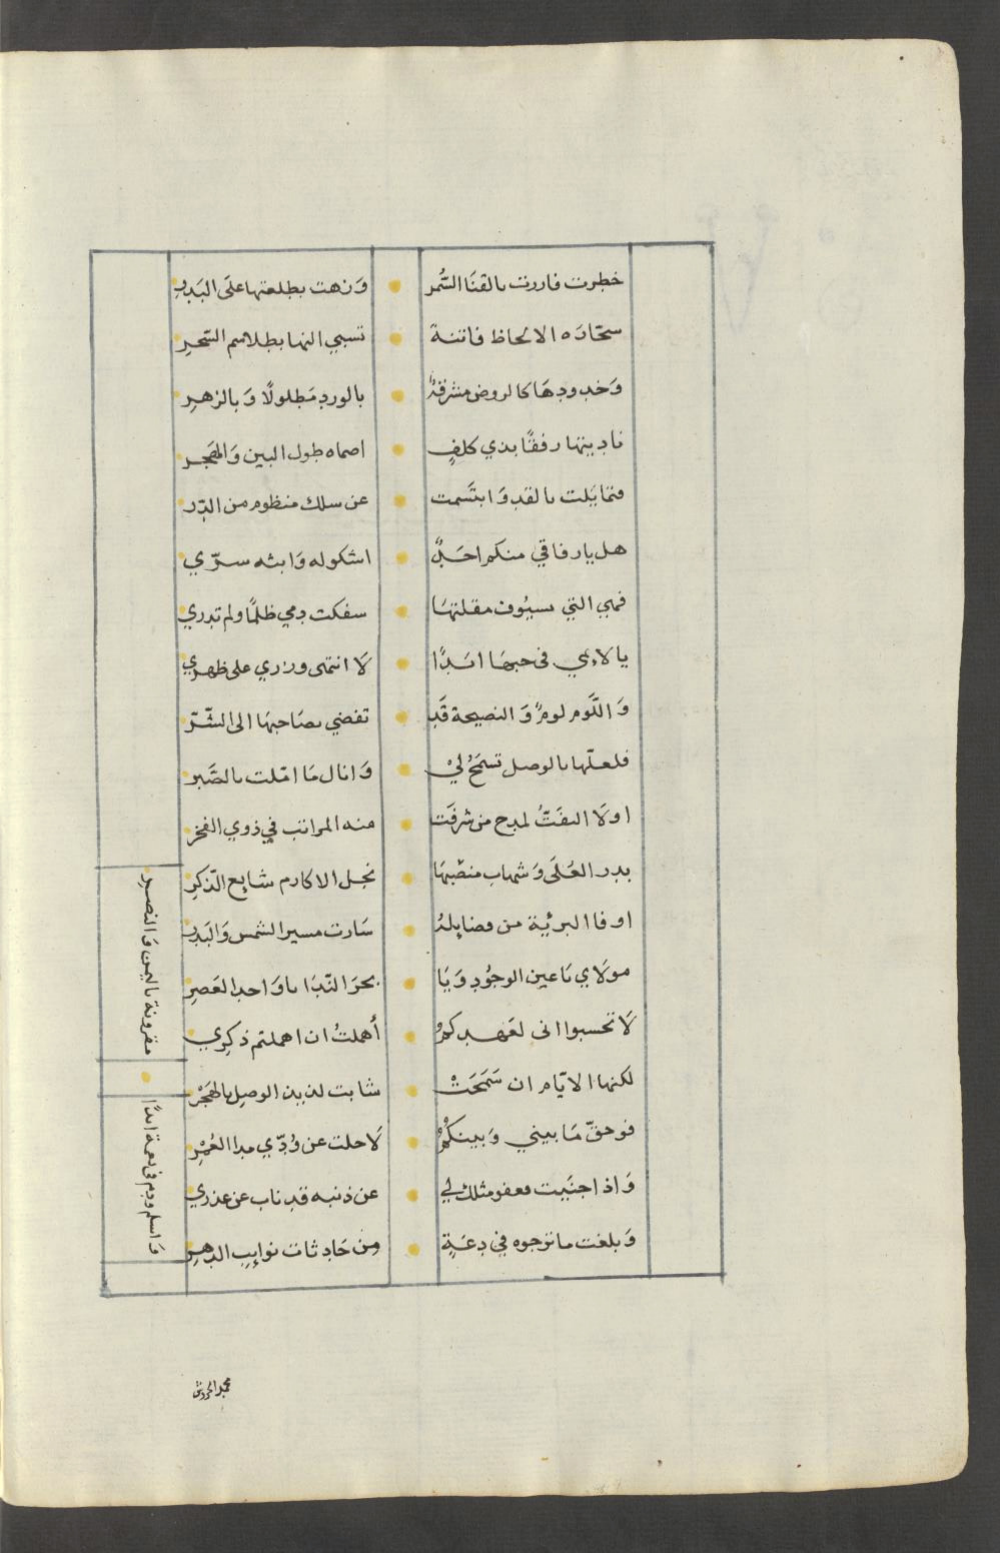 خطرت فازرت بالقنَا السُّمر وَزهت بطلعتها علَى البَدرِ
سحّارَه الالحاظ فاتنة تسبي النها بطلاسم السّحرِ
وَخدودهَا كالروض مشرقةٌ بالوردِ مَطلولًا وَبالزهرِ
ناديتها رفقًا بذي كلفٍ اصماه طول البين وَالهَجر
فتمايَلت بالقد وَابتَسمت عن سلك منظوم من الدّر
هل يا رفاقي منكم احَدٌ اشكو له وَابثه سرّي
فهي التي بسيُوف مقلتهَا سفكت دمي ظلمًا ولم تدري
يا لائمي في حبهَا ابَدًا لَا انتهى وزري على ظهري
وَاللَّوم لومٌ وَالنصيحة قَد تفضي بصَاحبهَا الى الشّرّ
فلعلّها بالوصل تسمَحُ ليْ وَانال مَا امّلت بالصَّبر
اولَا التفَتُّ لمدح من شرفَت منه المراتب في ذوي الفخر
بدر العُلَى وَشهاب منصّبهَا نجل الاكارم شايع الذّكرِ
اوفا البرئية من فضايلهُ سَارت مسير الشمس وَالبَدرِ
مولَاي يَا عين الوجُودِ وَيَا بحرَ النّدَا يا وَاحد العَصرِ
لَا تحسبوا اني لعَهدكمُ أهملتُ ان اهملتم ذكري
لكنها الايّام ان سَمَحَتْ شابت لذيذ الوصل بالهَجْرْ
فوحقّ مَا بيني وَبينكُمُ لَا حلت عن وُدّي مدا العُمْرِ
وَاذا جنَيت فعفو مثلك لي عن ذنبه قد ناب عن عذري
وَبلغت ما ترجوه في دعَةٍ ومن حَادثات نوايِبِ الدهرِ
وَاسلم ودم في نعمة ابدًا
مقرونة باليمن وَالنصرِ